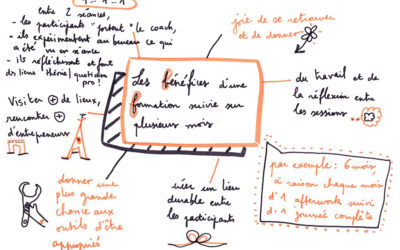 entre 2 séances,
- les participants "portent" le coach,
- ils expérimentent au bureau ce qui
a été vu en séance
- ils réfléchissent et font
des liens théorie/quotidien
pro!
joie de se retrouver
et de donner
Les bénéfices d'une
formation suivie sur
plusieurs mois
du travail et de
la réflexion entre
les sessions...
Visiter + de lieux,
rencontrer +
d'entrepreneurs
donner une
plus grande
chance aux
outils d'être
appropriés
créer un lien
durable entre
les participants
par exemple : 6 mois
à raison chaque mois
d'1 afterwork suivi
d'1 journée complète